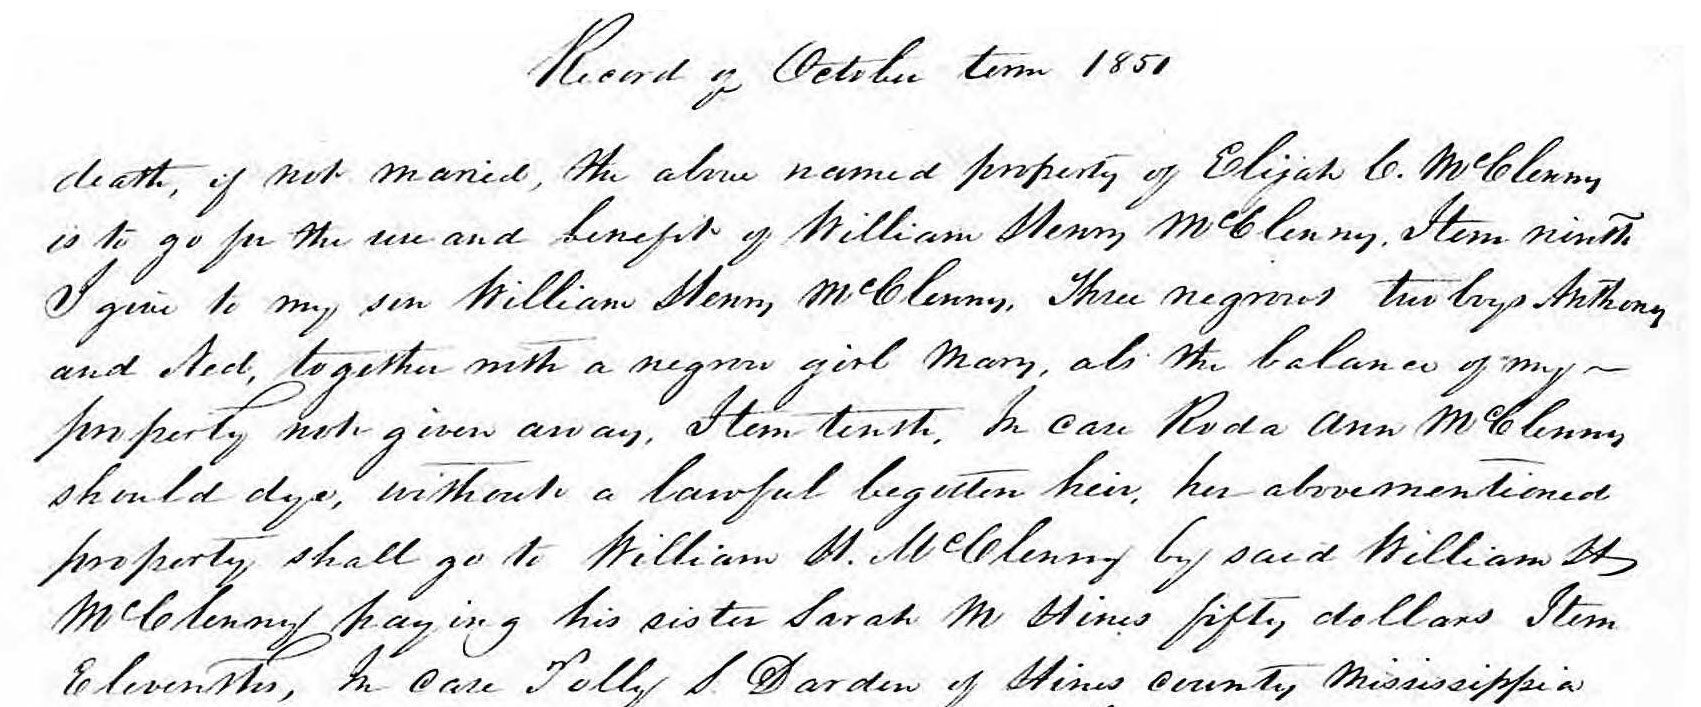 Record of October term 1851
death, if not maried, the above named property of Elijah C. McClenny
is to go for the use and benefit of William Henry McClenny, Item ninth
I give to my son William Henry McClenny, Three negroes two boys Anthony
and Ned, together with a negroe girl Mary, als the balance of my
property not given away, Item tenth, In case Roda Ann McClenny
should dye, without a lawful begotten heir, her abovementioned
property shall go to William H. McClenny by said William H
McClenny paying his sister Sarah M Hines fifty dollars Item
Eleventh, In case Polly S. Darden of Hines county Mississippia